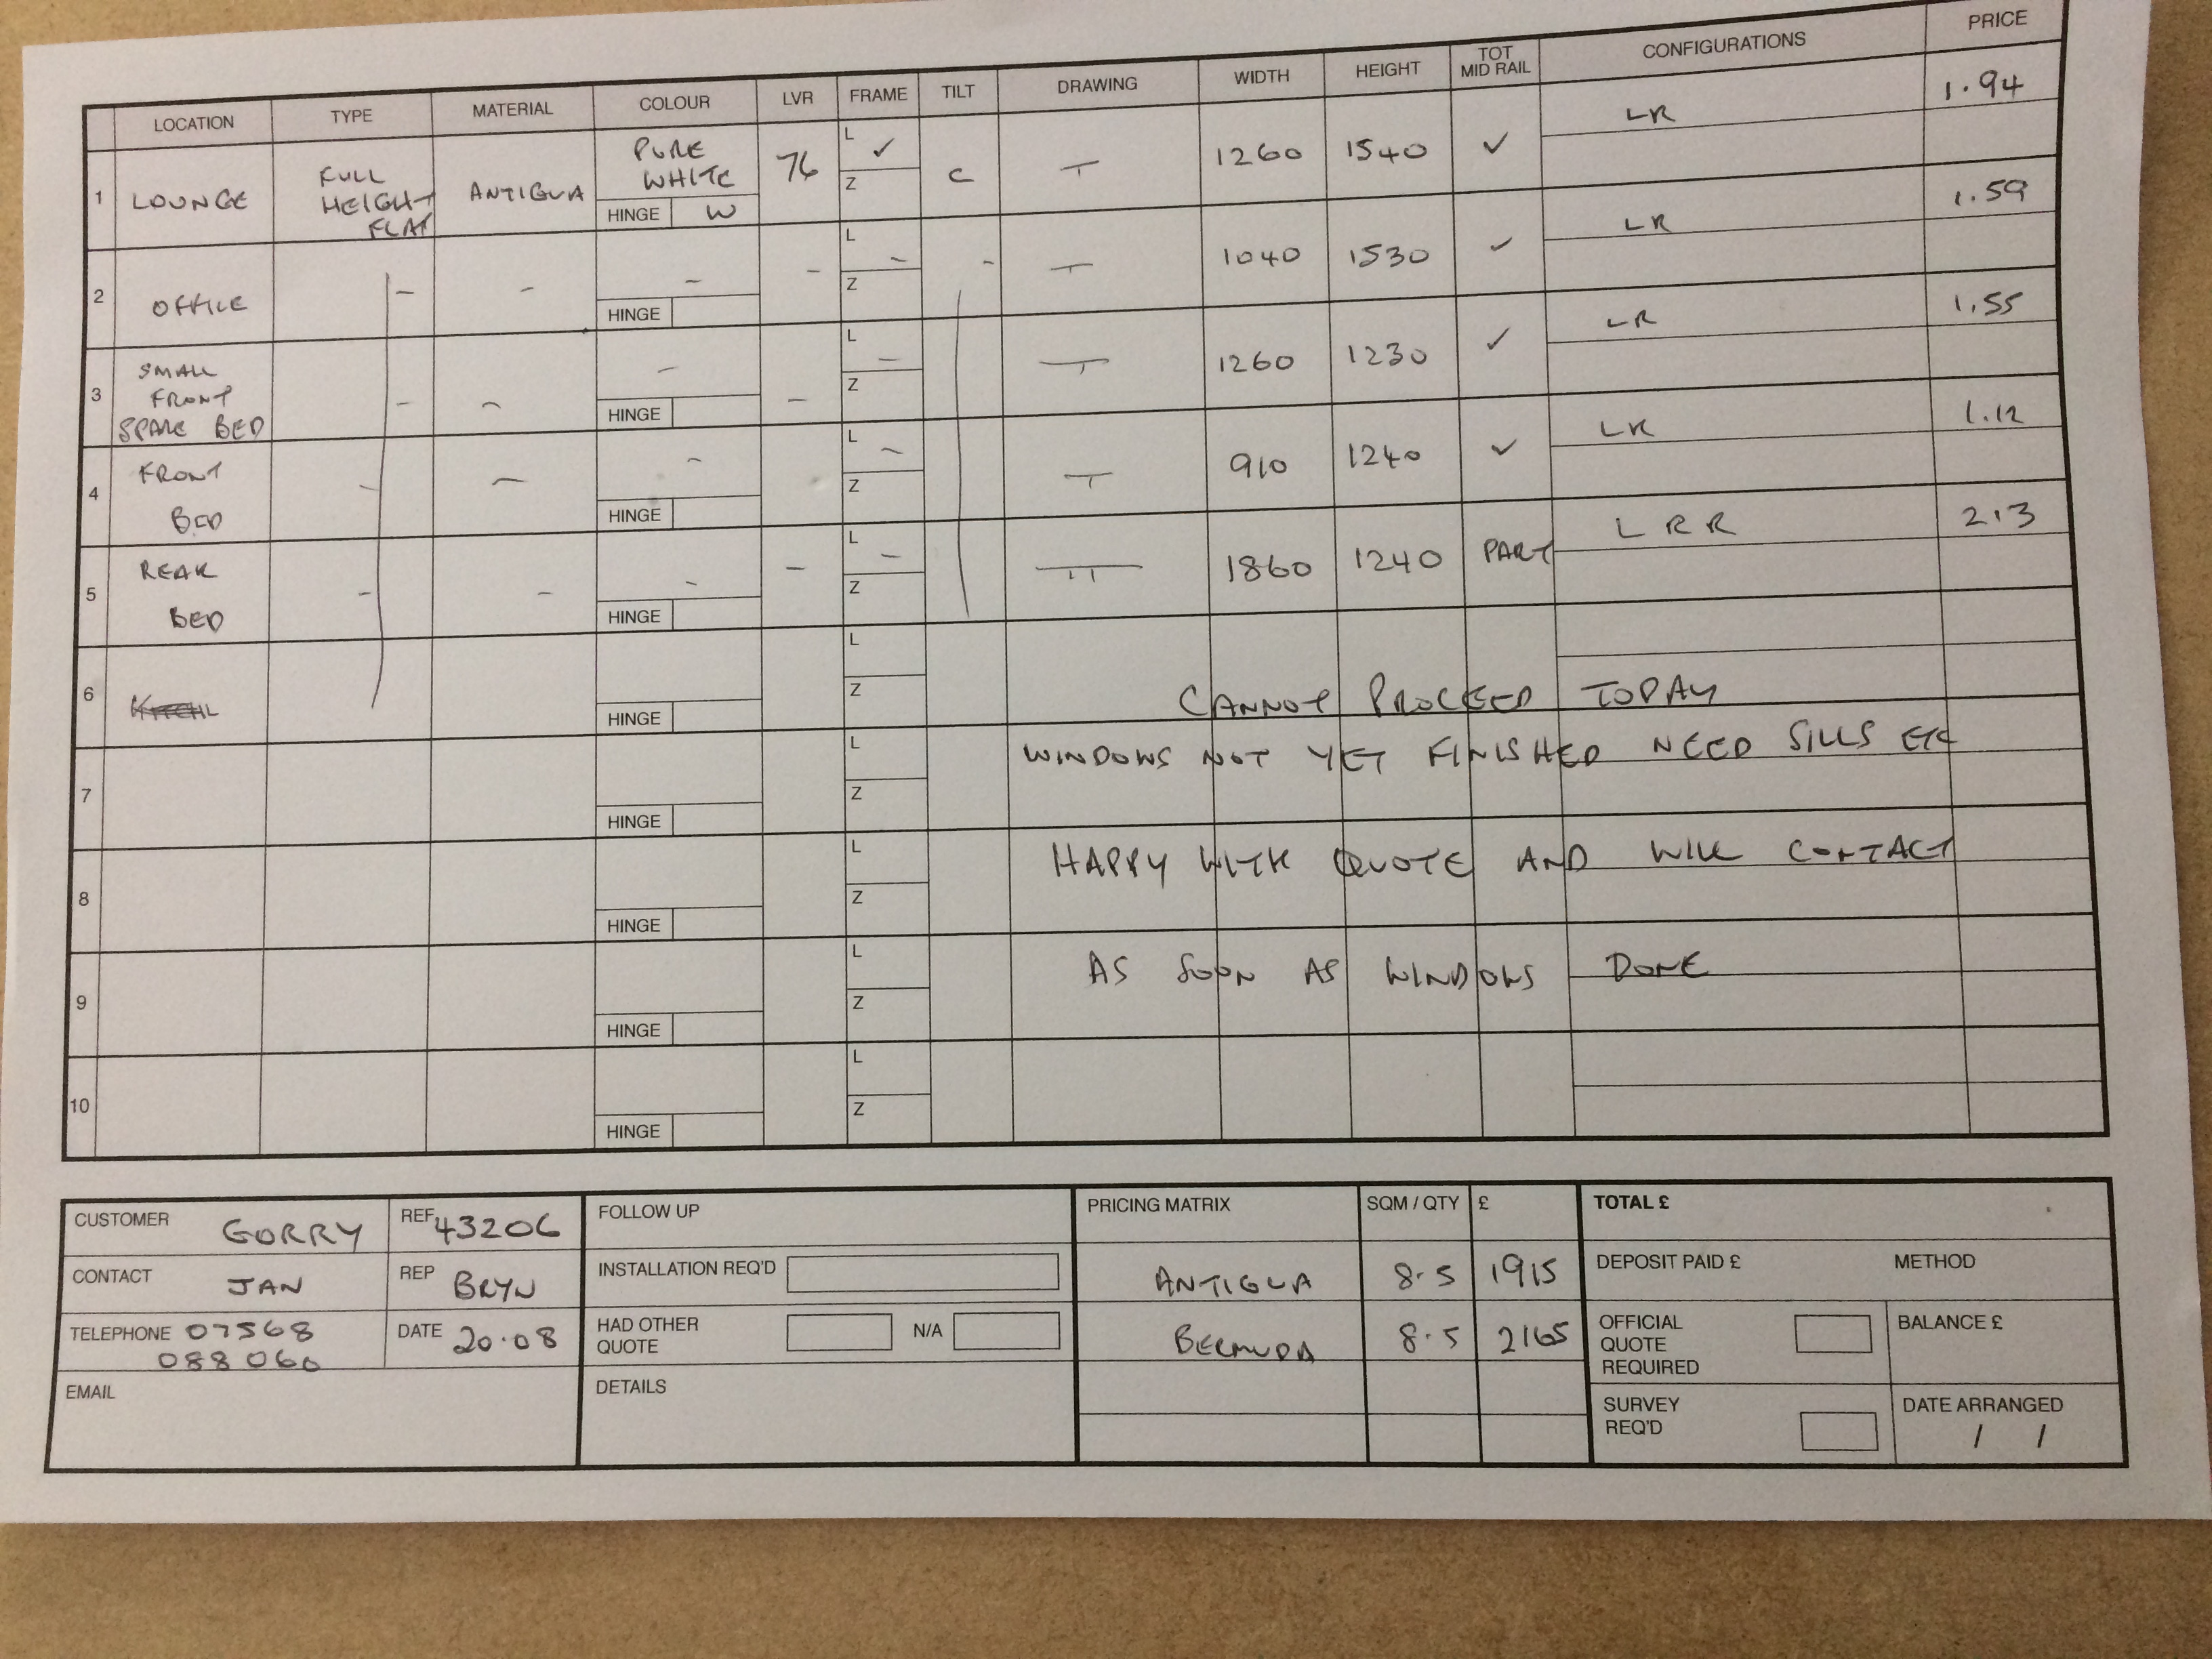 LOCATION TYPE MATERIAL COLOUR LVR FRAME TILT DRAWING WIDTH HEIGHT TOT MID RAIL CONFIGURATIONS PRICE
1 LOUNGE FULL HEIGHT FLAT ANTIGUA PURE WHITE HINGE W 76 L ✓ Z C T 1260 1540 ✓ LR 1.94
2 OFFICE - - - HINGE - L - Z - T 1040 1530 ✓ LR 1.59
3 SMALL FRONT SPARE BED - - - HINGE - L - Z T 1260 1230 ✓ LR 1.55
4 FRONT BED - - - HINGE L - Z T 910 1240 ✓ LR 1.12
5 REAR BED - - - HINGE - L - Z TT 1860 1240 PART LRR 2.13
6 HINGE L Z CANNOT PROCEED TODAY
7 HINGE L Z WINDOWS NOT YET FINISHED NEED SILLS ETC
8 HINGE L Z HAPPY WITH QUOTE AND WILL CONTACT
9 HINGE L Z AS SOON AS WINDOWS DONE
10 HINGE L Z
CUSTOMER GORRY REF 43206
CONTACT JAN REP BRYN
TELEPHONE 07568 088060 DATE 20.08
EMAIL
FOLLOW UP
INSTALLATION REQ'D
HAD OTHER QUOTE N/A
DETAILS
PRICING MATRIX SQM / QTY £
ANTIGUA 8.5 1915
BERMUDA 8.5 2165
TOTAL £
DEPOSIT PAID £ METHOD
OFFICIAL QUOTE REQUIRED BALANCE £
SURVEY REQ'D DATE ARRANGED
/ /